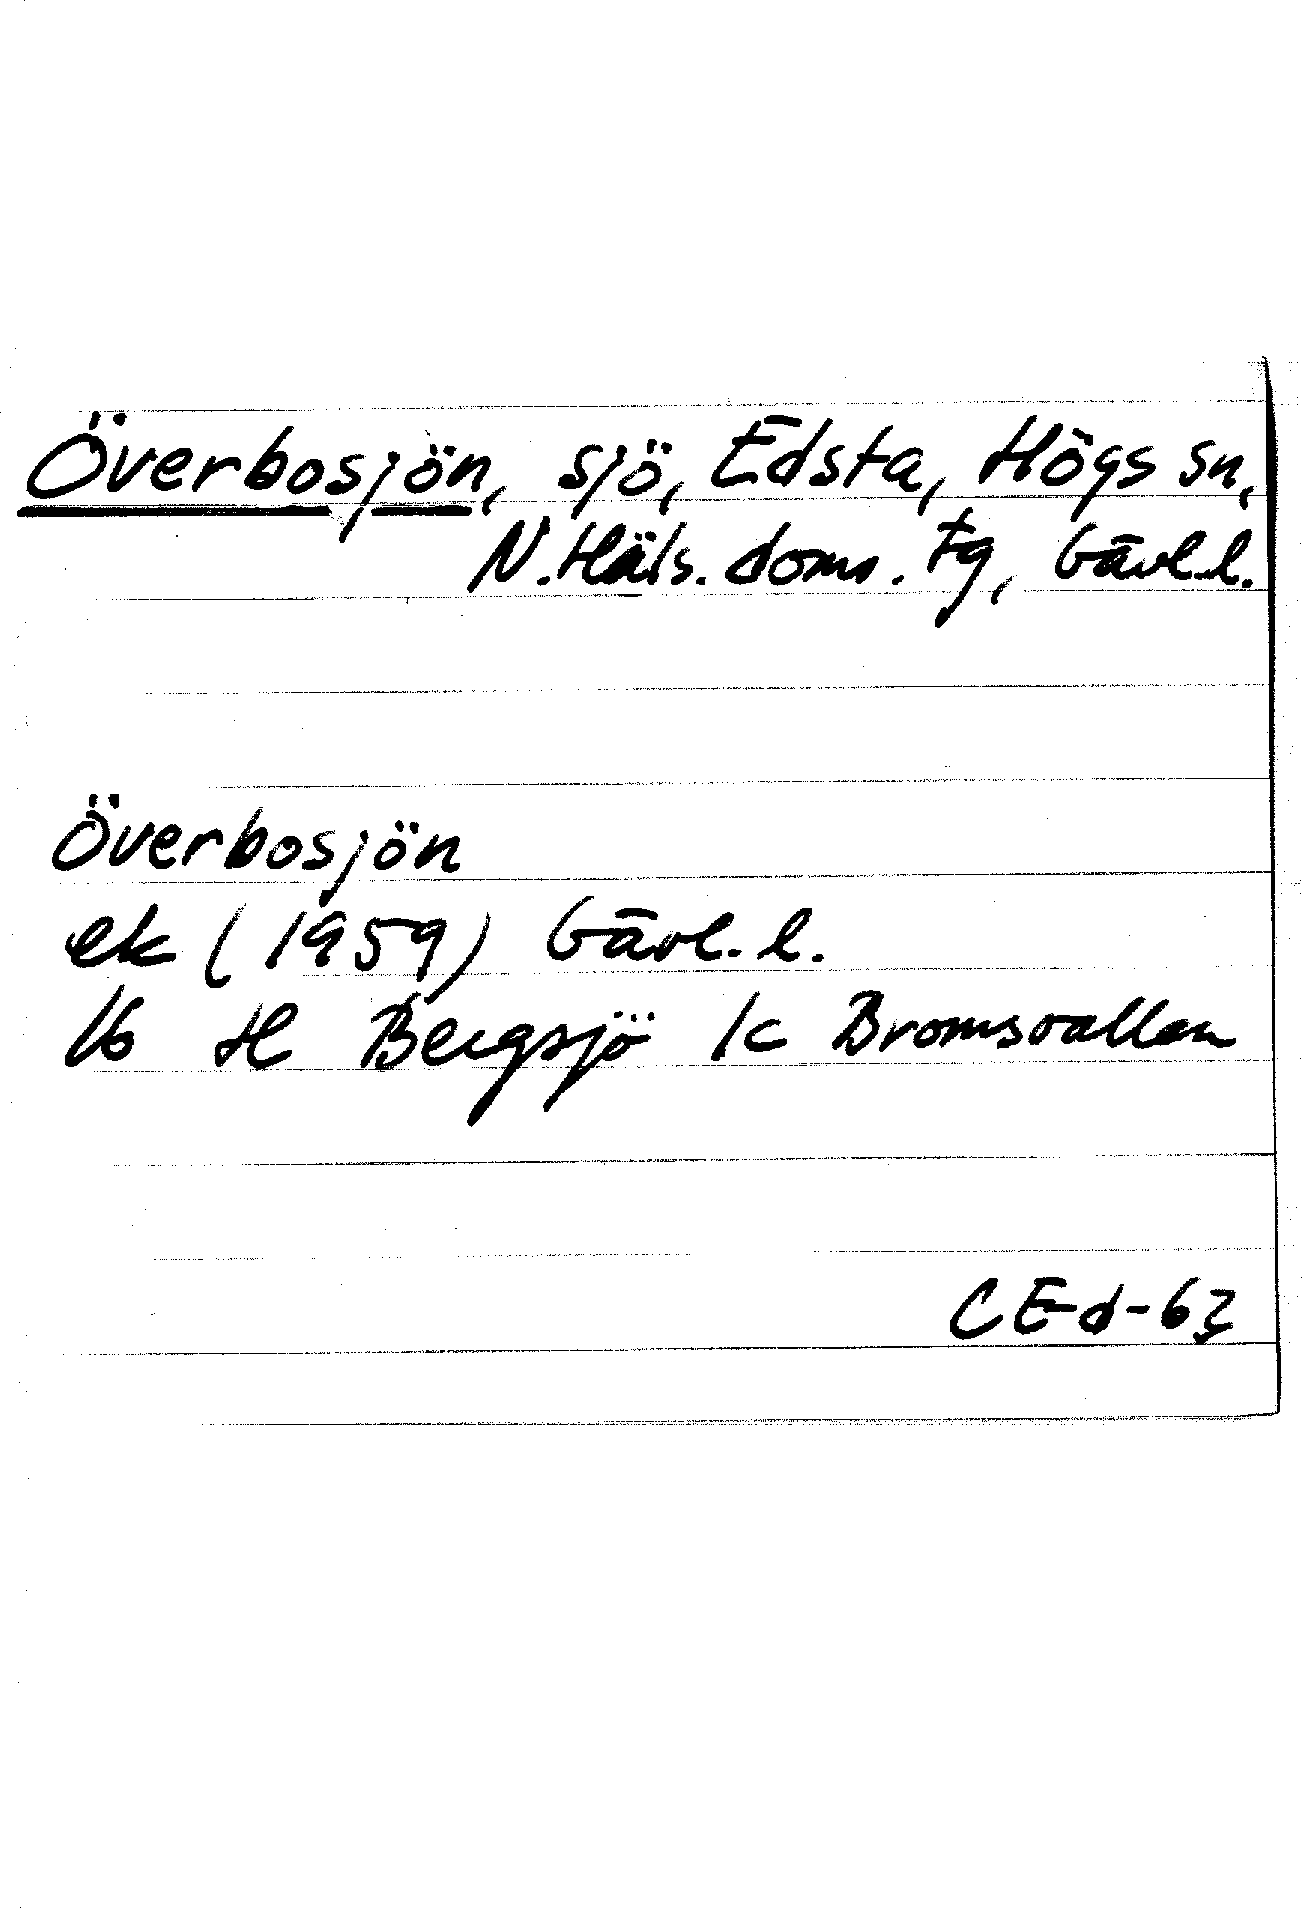 Överbosjön, sjö, Edsta, Högs sn,
N. Häls. doms. tg, Gävl. l.
Överbosjön
ek (1959) Gävl. l.
16 H Bergsjö 1c Bromsvallen
CE-d-63